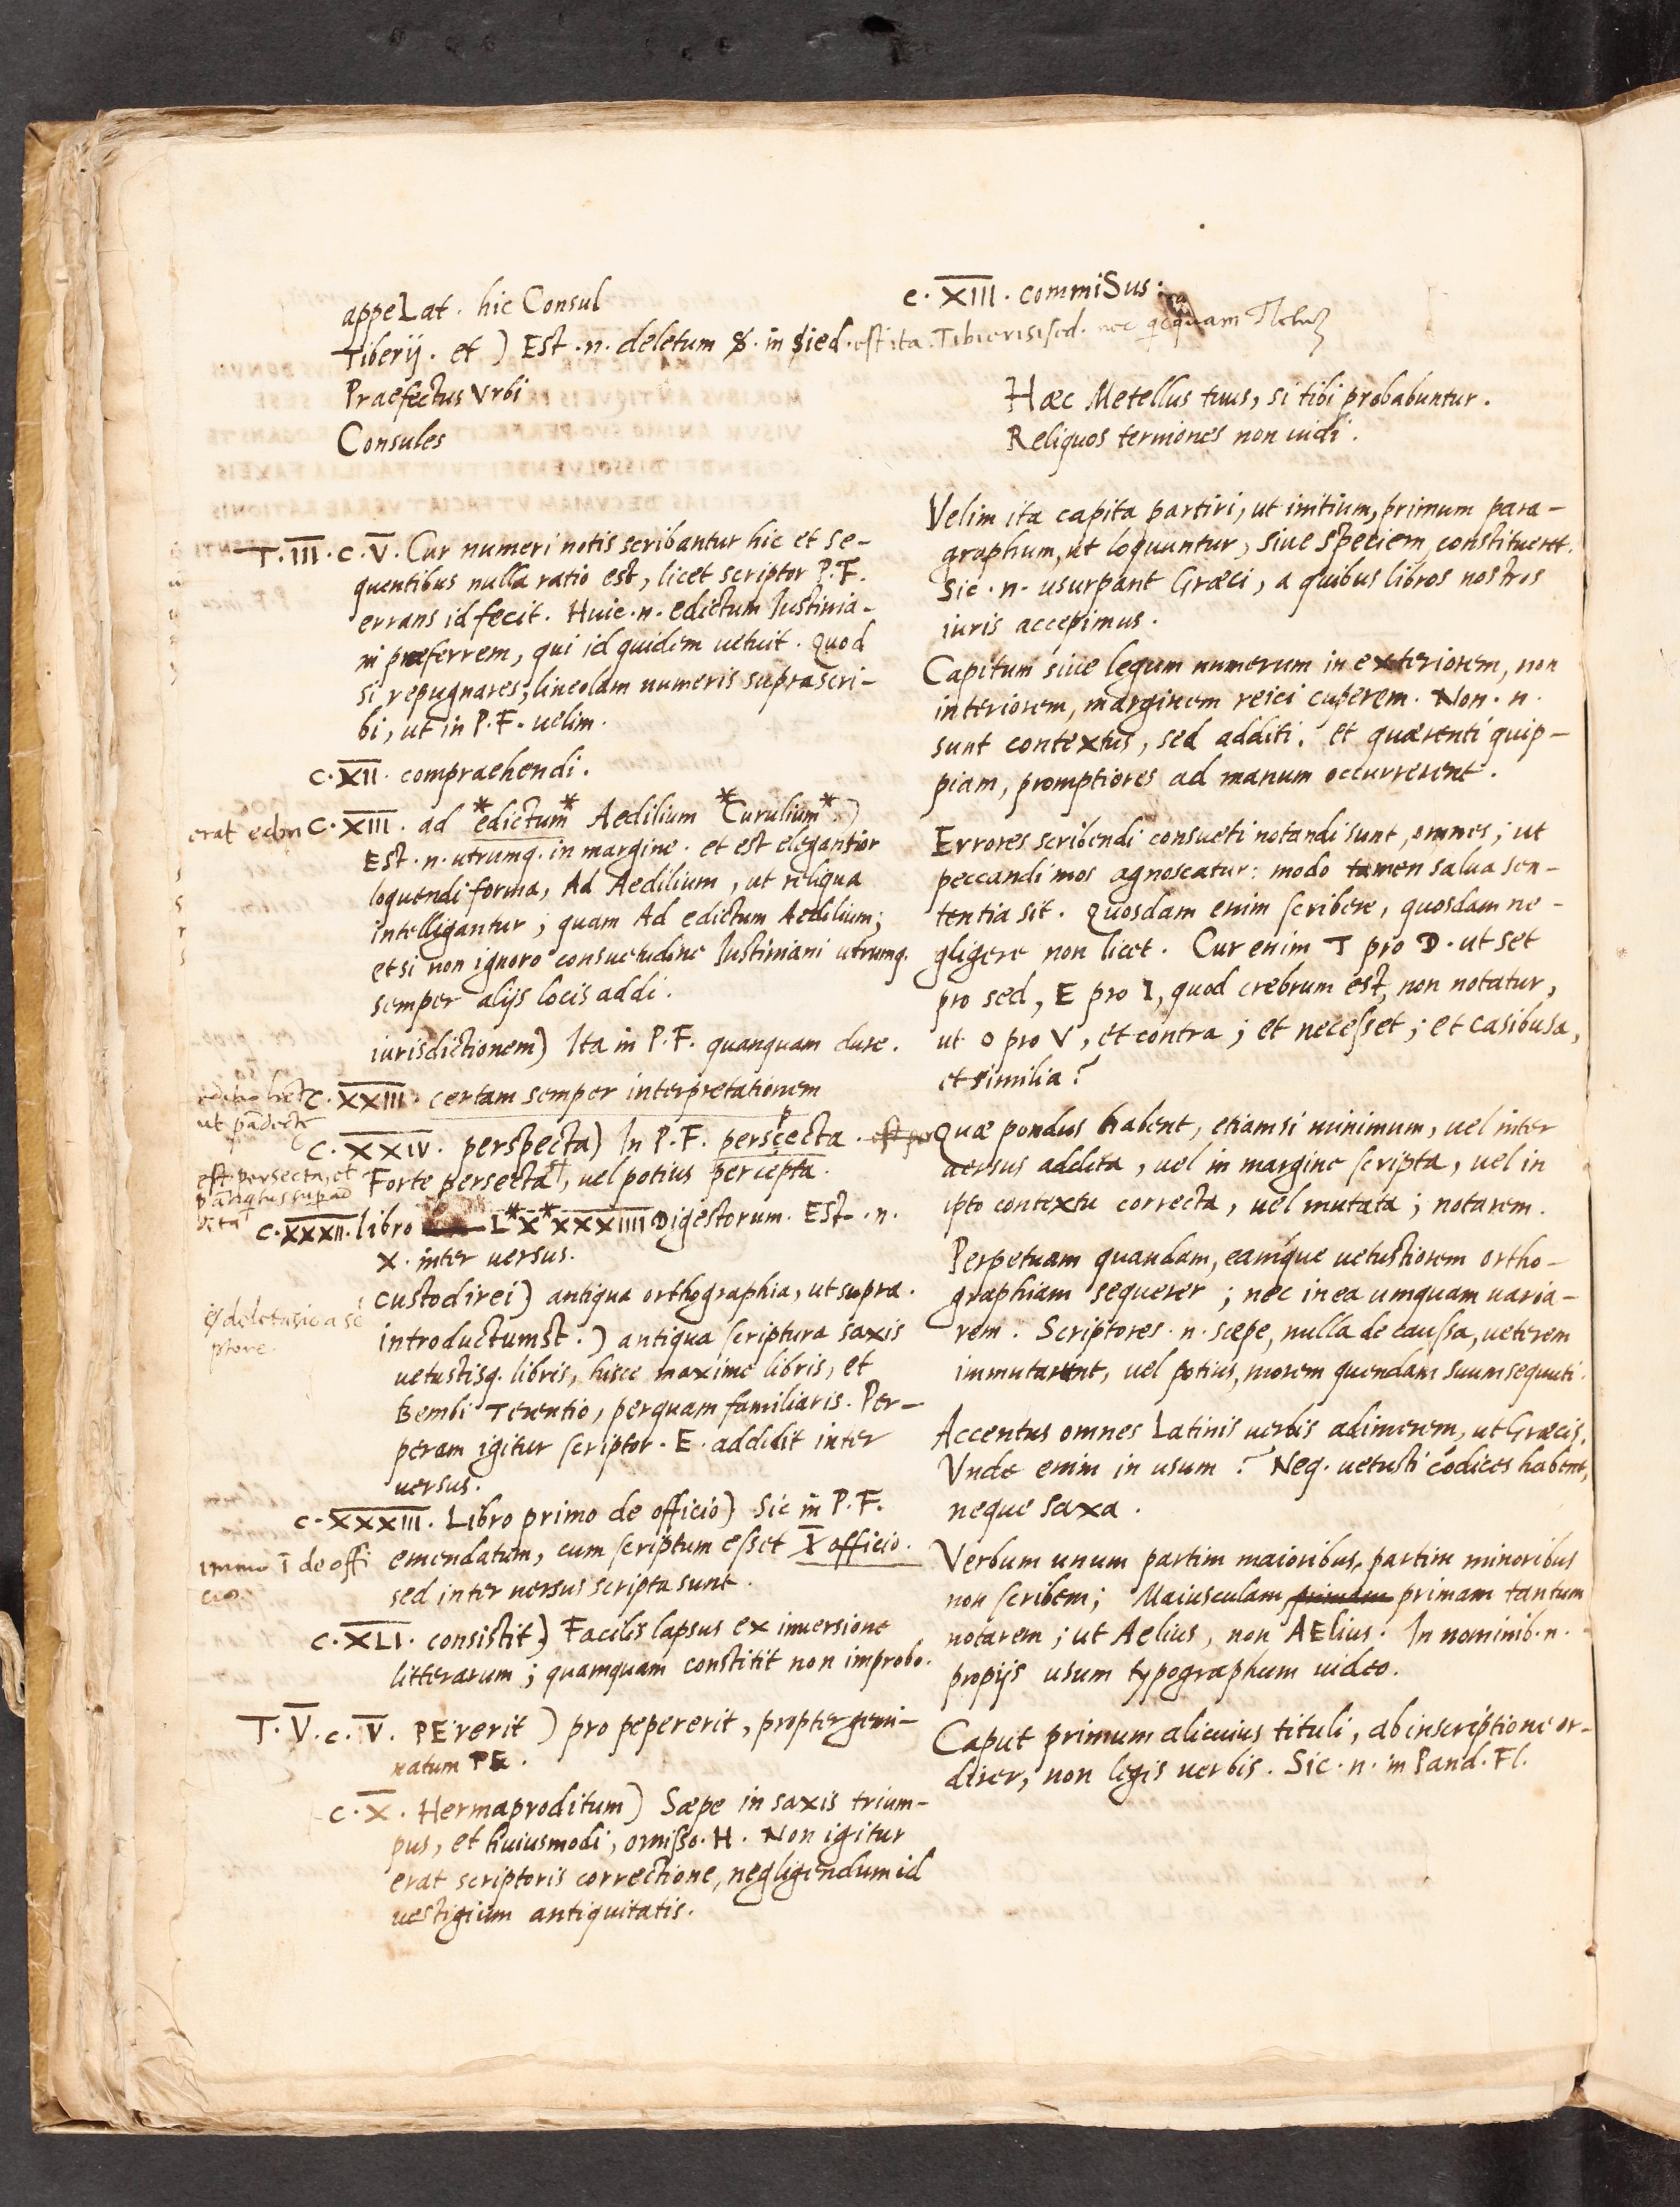 appeLat. hic Consul
Tiberij. et ) Est .n. deletum S. in sied. est ita. Tiberisised. nec
Praefectus Vrbi
Consules
T. III. C. V. Cur numeri notis scribantur hic et se-
quentibus nulla ratio est, licet scriptor P.F.
errans id fecit. Huic .n. edictum Iustinia-
ni præferrem, qui id quidem uetuit. Quod
si repugnares, lineolam numeris suprascri-
bi, ut in P.F. uelim.
C. XII. compraehendi.
erat
C. XIII. ad *edictum* Aedilium *Curulium*)
Est .n. utrumq. in margine. et est elegantior
loquendi forma, Ad Aedilium, ut reliqua
intelligantur; quam Ad edictum Aedilium;
etsi non ignoro consuetudine Iustiniani utrumq.
semper alijs locis addi.
iurisdictionem) Ita in P.F. quanquam dure.
C. XXIII. certam semper interpretationem
C. XXIV. perspecta) In P.F. persçecta.
est persecta, et
Forte persecta, uel potius percepta.
C. XXXII. libro L*X*XXXIIII Digestorum. Est .n.
X. inter uersus.
custodirei) antiqua orthographia, ut supra.
introductumst.) antiqua scriptura saxis
uetustisq. libris, hisce maxime libris, et
Bembi Terentio, perquam familiaris. Per-
peram igitur scriptor .E. addidit inter
uersus.
C. XXXIII. Libro primo de officio) Sic in P.F.
immo I de offi
cio.
emendatum, cum scriptum esset I officio.
sed inter uersus scripta sunt.
C. XLI. consistit) Facilis lapsus ex inuersione
litterarum; quamquam constitit non improbo.
T. V. C. V. PErerit) pro pepererit, propter gemi-
natum PE.
C. X. Hermaproditum) Sæpe in saxis trium-
pus, et huiusmodi, omisso .H. Non igitur
erat scriptoris correctione, negligendum id
uestigium antiquitatis.
C. XIII. commiSus.
Hæc Metellus tuus, si tibi probabuntur.
Reliquos terniones non uidi.
Velim ita capita partiri, ut initium, primum para-
graphum, ut loquuntur, siue speciem, constitueret.
Sic .n. usurpant Græci, a quibus libros nostros
iuris accepimus.
Capitum siue legum numerum in exteriorem, non
interiorem, marginem reici cuperem. Non .n.
sunt contextus, sed additi. et quærenti quip-
piam, promptiores ad manum occurrerent.
Errores scribendi consueti notandi sunt, omnes; ut
peccandi mos agnoscatur: modo tamen salua sen-
tentia sit. Quosdam enim scribere, quosdam ne-
gligere non licet. Cur enim T pro D. ut set
pro sed, E pro I, quod crebrum est, non notatur,
ut O pro V, et contra; et necesset; et casibusa,
et similia?
Quæ pondus habent, etiamsi minimum, uel inter
uersus addita, uel in margine scripta, uel in
ipso contextu correcta, uel mutata; notarem.
Perpetuam quandam, eamque uetustiorem ortho-
graphiam sequerer; nec in ea umquam uaria-
rem. Scriptores .n. sæpe, nulla de caussa, ueterem
immutarunt, uel potius, morem quendam suum sequuti.
Accentus omnes Latinis uerbis adimerem, ut Græcis.
Vnde enim in usum? Neq. uetusti codices habent,
neque saxa.
Verbum unum partim maioribus, partim minoribus
non scribem; Maiusculam primam tantum
notarem; ut Aelius, non AElius. In nominib. n.
propijs usum typographum uideo.
Caput primum alicuius tituli, ab inscriptione or-
direr, non legis uerbis. Sic .n. in Pand. Fl.